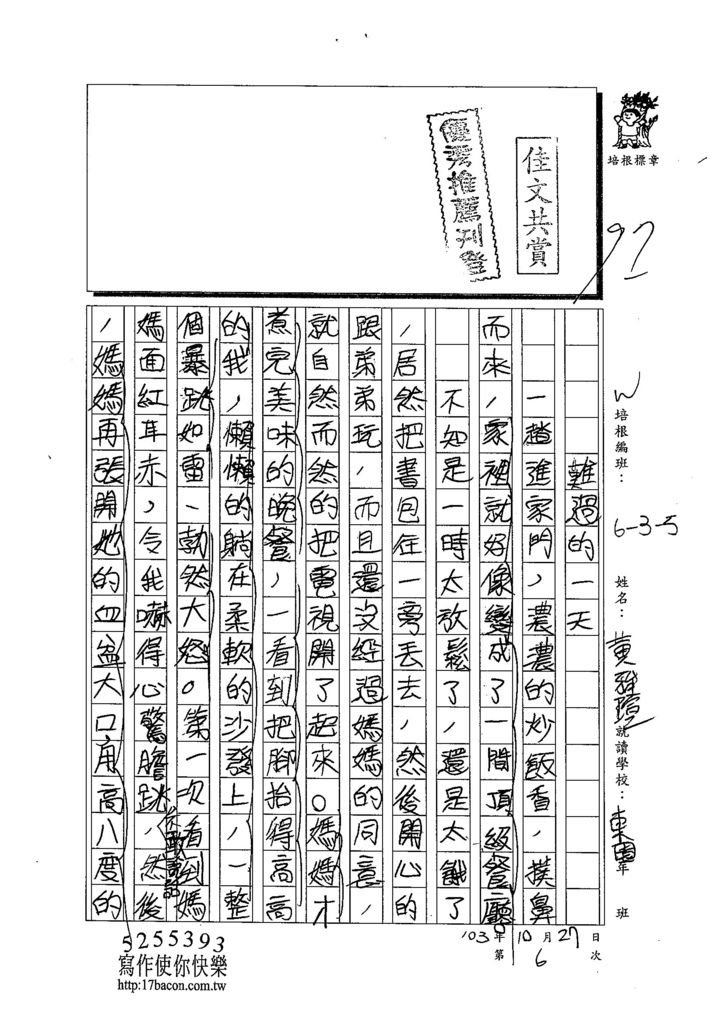 佳文共賞
優秀推薦刊登
培根標章
97
W
培根編班：
6-3-5
姓名：黃雅
就讀學校：東園
年 班
103年10月27日
第6次
難過的一天
一趟進家門，濃濃的炒飯香，撲鼻
而來，家裡就好像變成了一間頂級餐廳
不知是一時太放鬆了，還是太餓了
，居然把書包往一旁丟去，然後開心的
跟弟弟玩，而且還沒經過媽媽的同意，
就自然而然的把電視開了起來。媽媽才
煮完美味的晚餐，一看到把腳抬得高高
的我，懶懶的躺在柔軟的沙發上，一整
個暴跳如雷、勃然大怒。第一次看到媽
媽面紅耳赤，令我嚇得心驚膽跳，不敢說話，然後
，媽媽再張開她的血盆大口用高八度的
5255393
寫作使你快樂
http:17bacon.com.tw